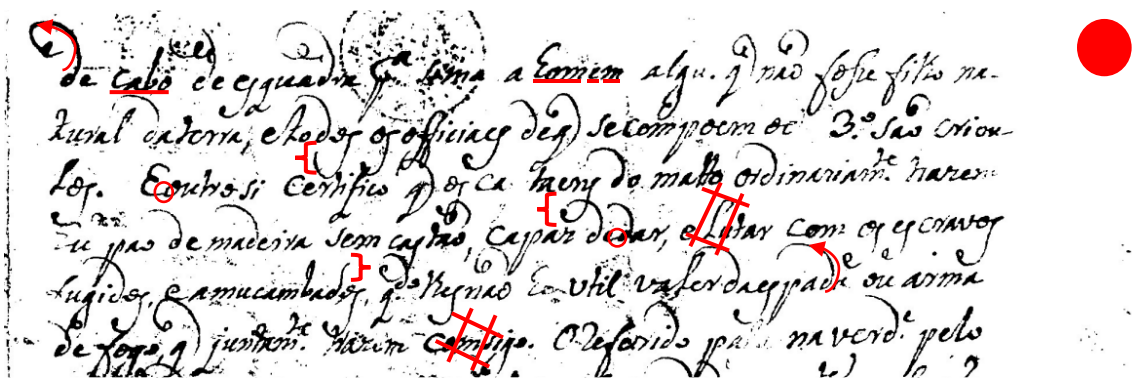 de cabo de esquadra p.ª sima a homem algu. q̃ não fosse filho na-
tural da terra, e todos os officiaes de q̃ se compoem oc 3.º são criou-
los. E outro si certifico q̃ os ca taens do matto ordinariam.te trazem
pao de madeira sem castão, capaz de dar, e lutar com os escravos
fugidos, e amucambados, q.do lhes não he util valer da espada ou arma
de fogo, q̃ juntam.te trazem comsigo. O referido pa na verd.e pelo